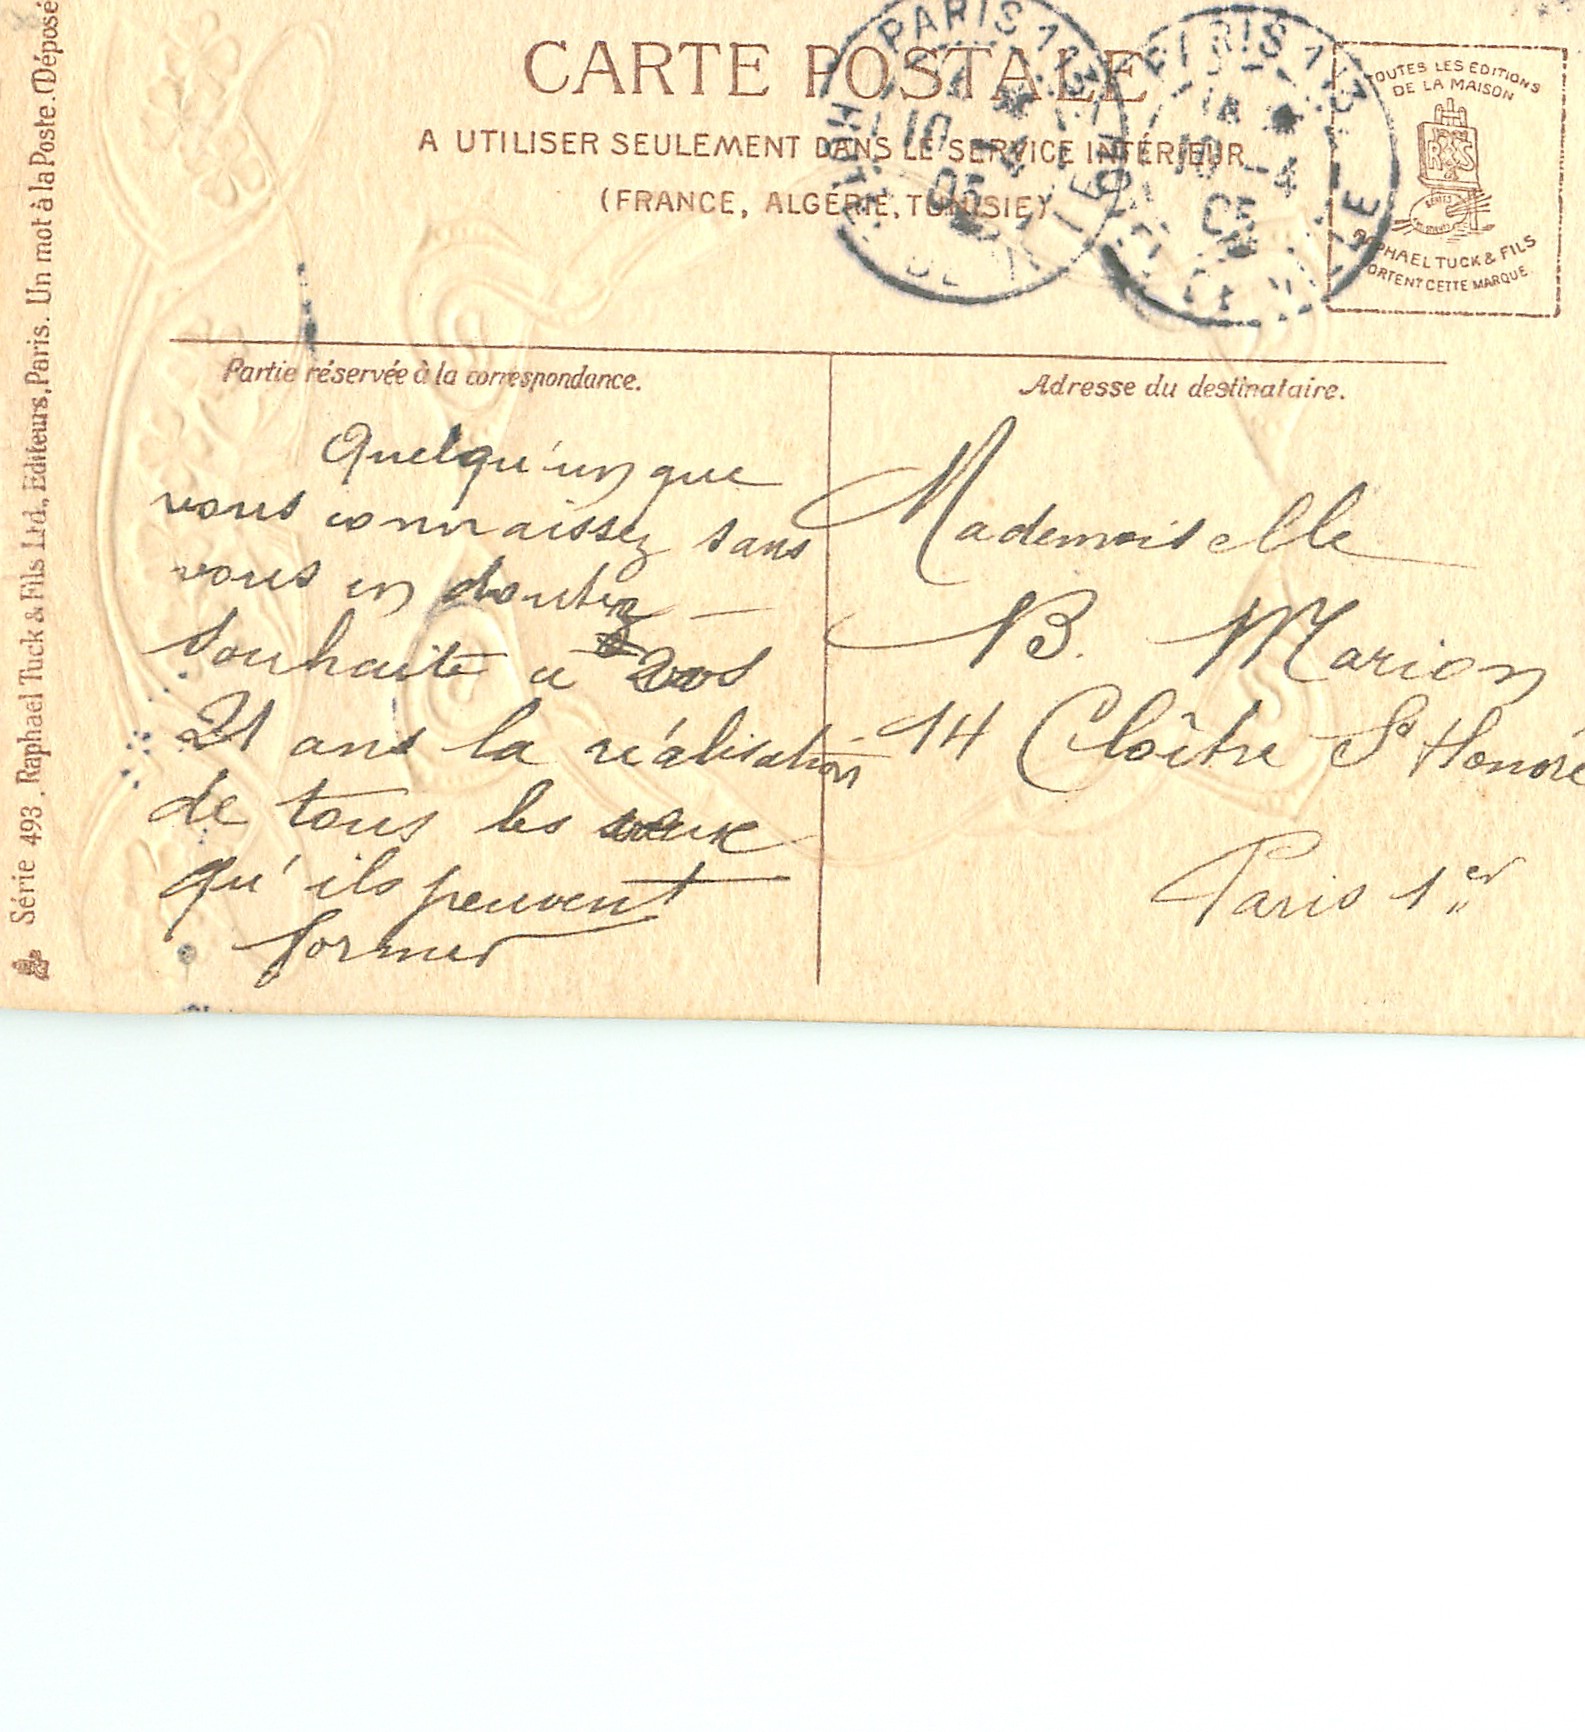 CARTE POSTALE
A UTILISER SEULEMENT DANS LE SERVICE INTÉRIEUR
(FRANCE, ALGÉRIE, TUNISIE)
TOUTES LES EDITIONS
DE LA MAISON
RAPHAEL TUCK & FILS
PORTENT CETTE MARQUE
PARIS 113
10
05
PARIS 113
10 -4
05
Série 493. Raphael Tuck & Fils Ltd., Editeurs, Paris. Un mot à la Poste. (Déposé
Partie réservée à la correspondance.
Quelqu'un que
vous connaissez sans
vous en doutez —
souhaite à vos
21 ans la réalisation
de tous les vœux
qu'ils peuvent
former
Adresse du destinataire.
Mademoiselle
B. Marion
14 Cloître St Honoré
Paris 1er